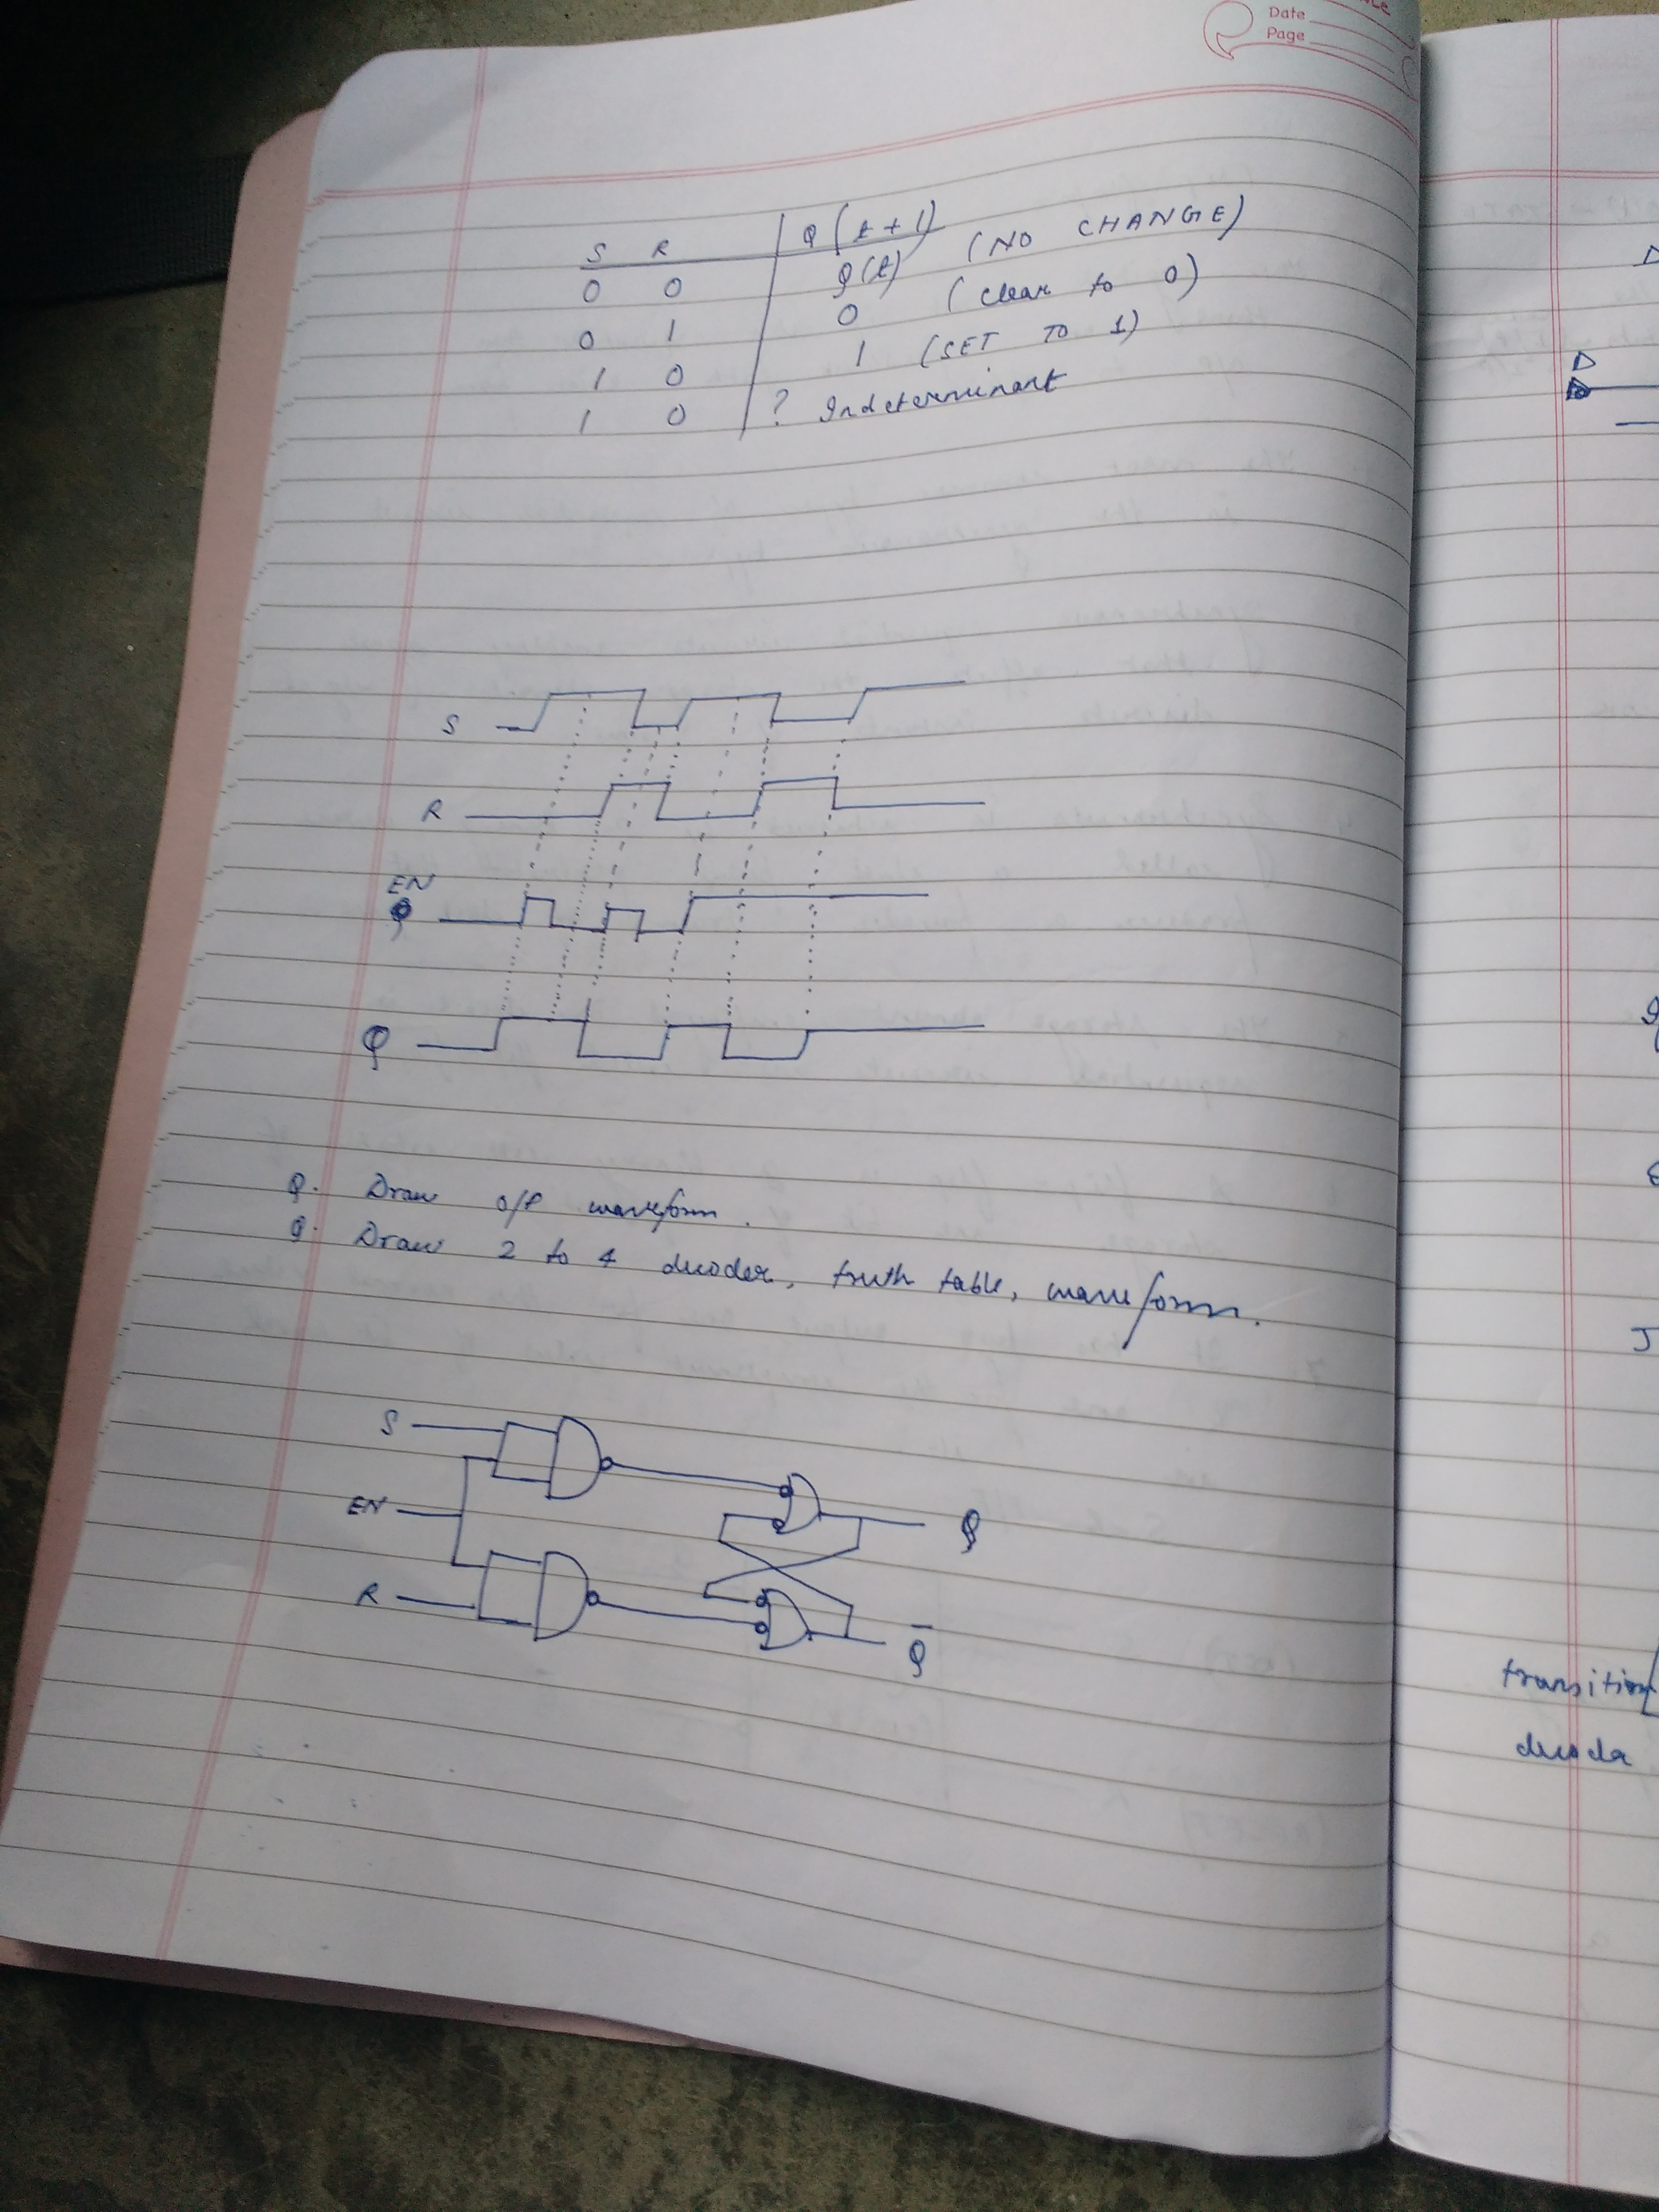 Date
Page
S R Q(t+1)
0 0 Q(t) (NO CHANGE)
0 1 0 (clear to 0)
1 0 1 (SET TO 1)
1 0 ? Indeterminant
S
R
EN
Q
Q. Draw o/p waveform.
Q. Draw 2 to 4 decoder, truth table, waveform.
S
EN
Q
R
Q̅
D
J
transition